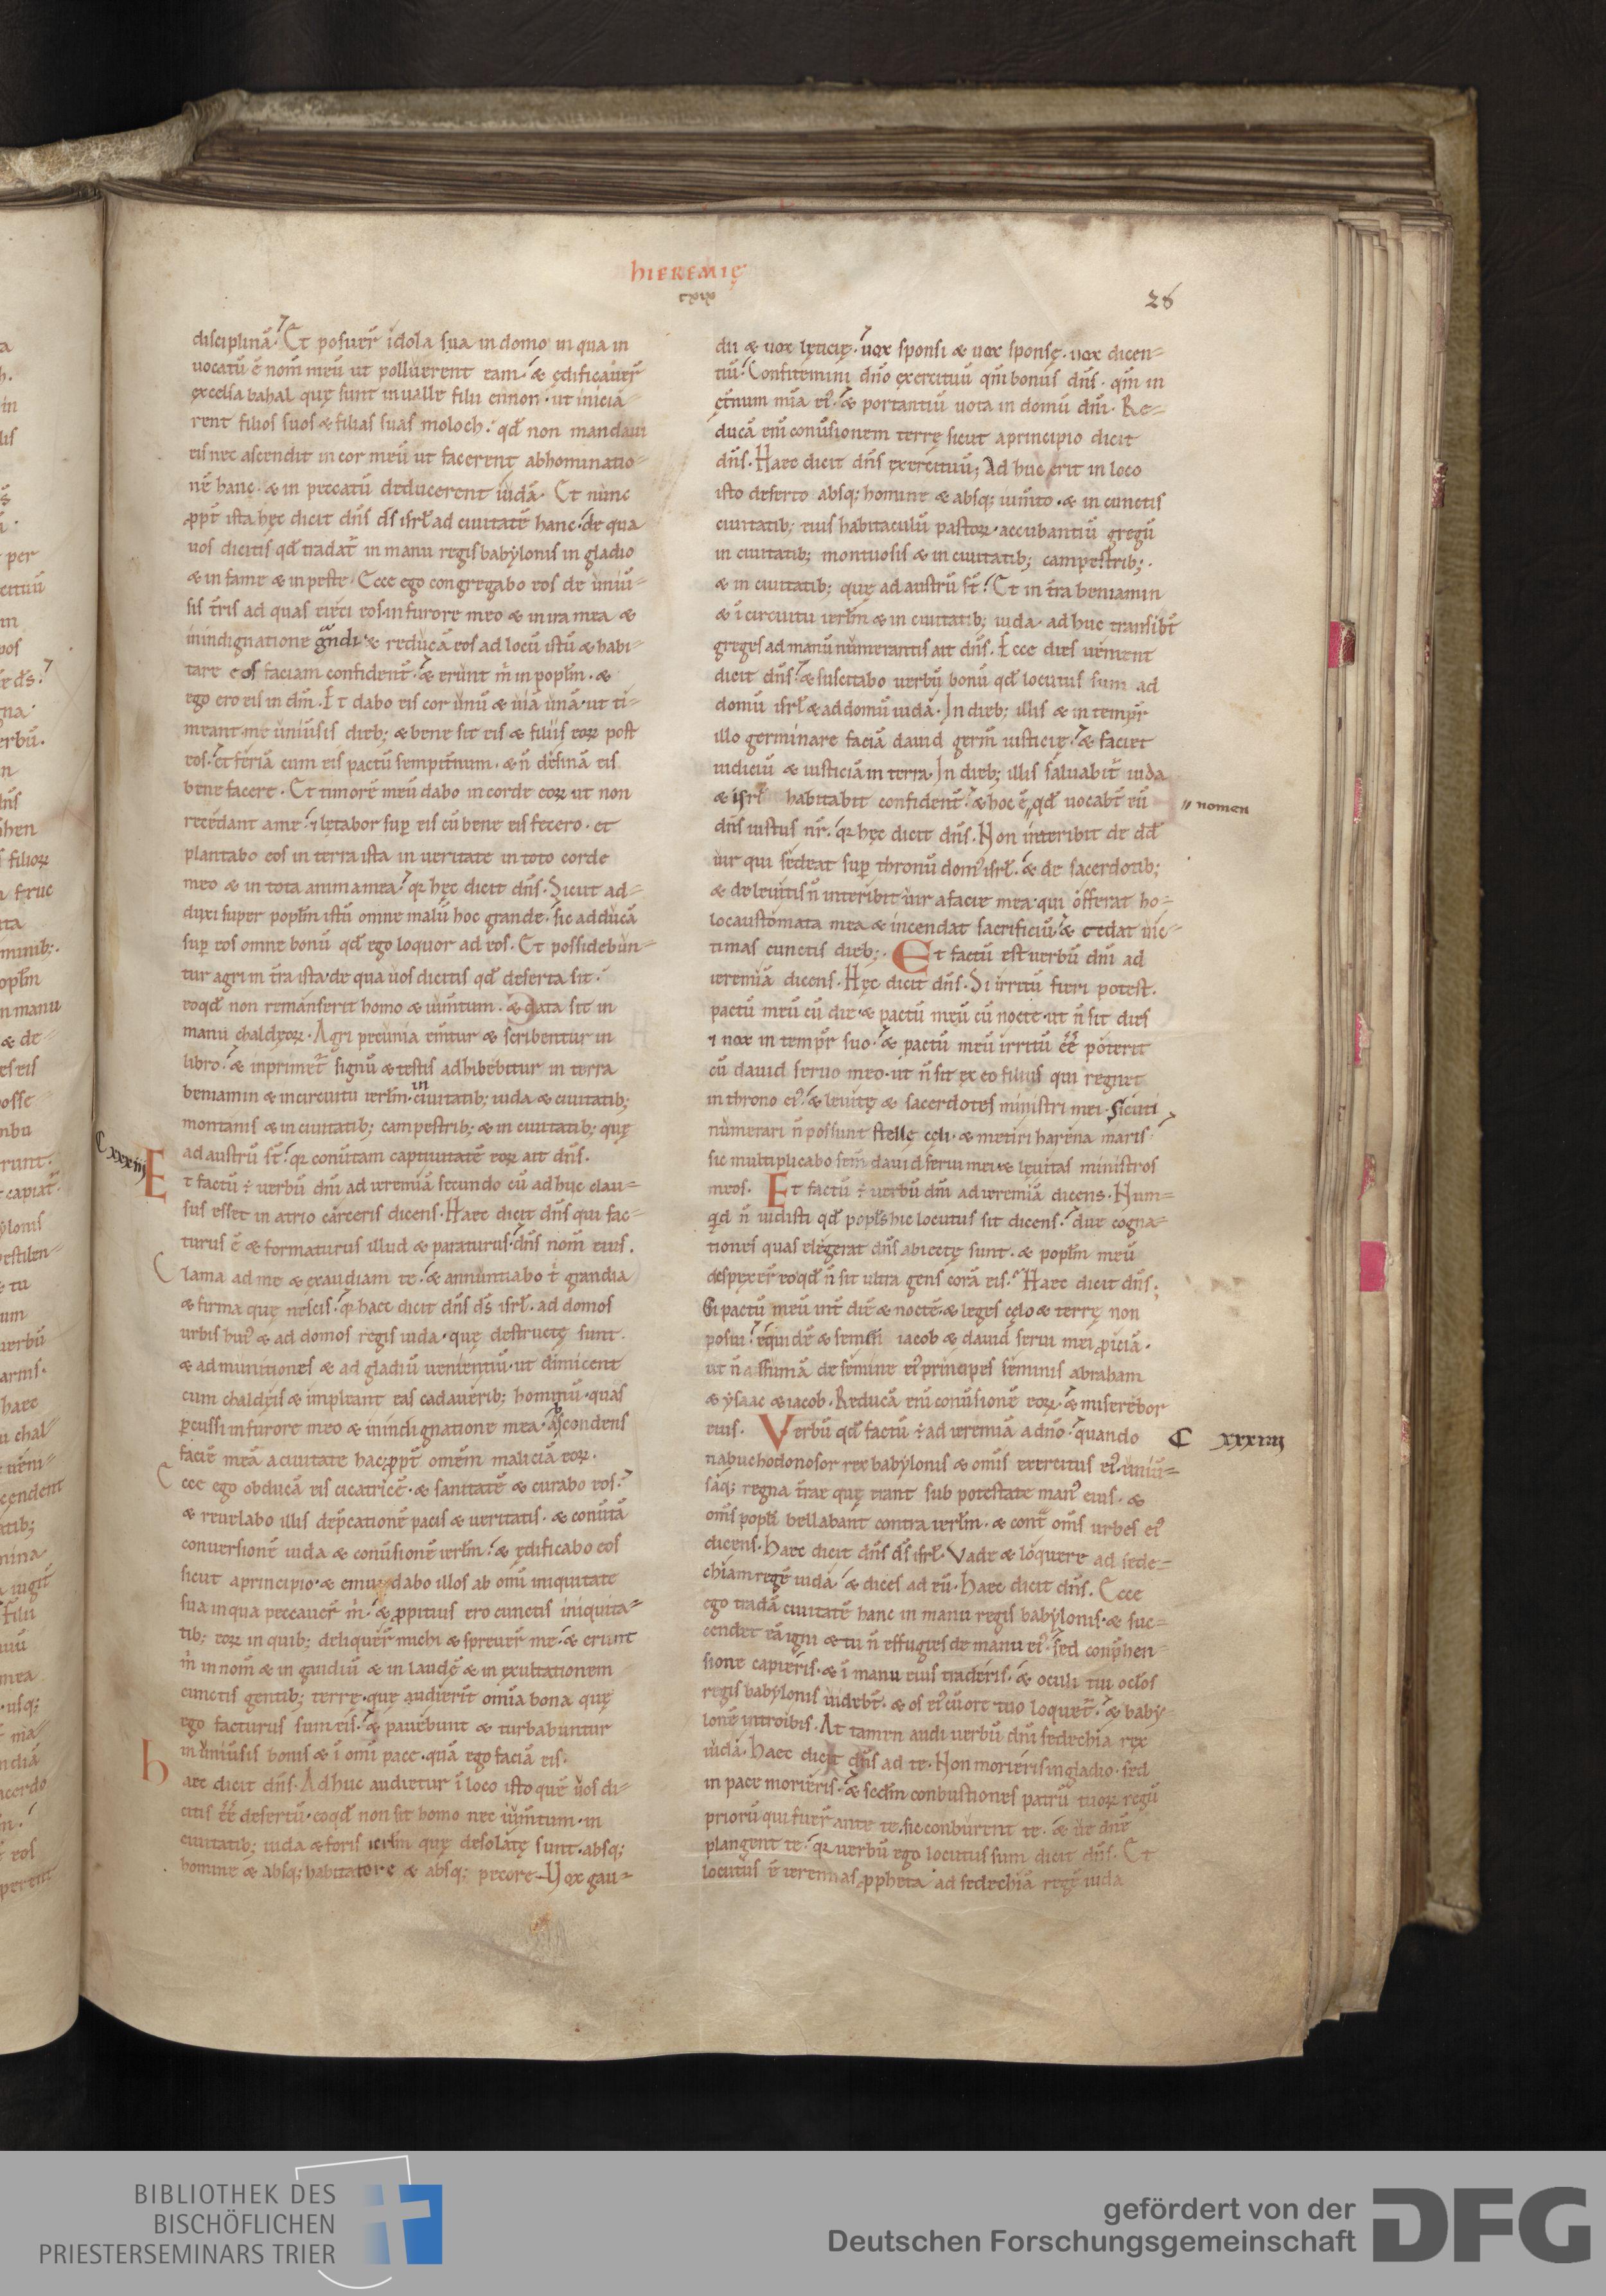 hIEREMIĘ
cxix
28
disciplinā. Et posuer̄ idola sua in domo in qua in
uocatū ē nom̄ meū ut polluerent eam. & ędificauer̄
excelsa bahal quę sunt in ualle filii ennon. ut inicia-
rent filios suos & filias suas moloch. qđ non mandaui
eis nec ascendit in cor meū ut facerent abhominatio-
nē hanc. & in peccatū deducerent iudā. Et nunc
ꝓpt̄ ista hęc dicit dn̄s ds̄ isrł ad ciuitatē hanc. de qua
uos dicitis qđ tradat̄ in manu regis babẏlonis in gladio
& in fame & in peste. Ecce ego congregabo eos de uniū-
sis t̄ris ad quas eieci eos in furore meo & in ira mea &
in indignatione g̃ndi. & reducā eos ad locū istū & habi-
tare eos faciam confident̄. & erunt m̄ in popłm. &
ego ero eis in dm̄. Et dabo eis cor unū & uiā unā. ut ti-
meant me uniūsis dieb; & bene sit eis & filiis eoꝝ post
eos. et feriā cum eis pactū sempit̄num. & n̄ desinā eis
benefacere. Et timorē meū dabo in corde eoꝝ ut non
recedant a me. ⁊ lętabor suꝑ eis cū bene eis fecero. et
plantabo eos in terra ista in ueritate in toto corde
meo & in tota anima mea. qꝛ hęc dicit dn̄s. Sicut ad-
duxi super popłm istū omne malū hoc grande. sic adducā
suꝑ eos omne bonū qđ ego loquor ad eos. Et possidebun-
tur agri in t̄ra ista. de qua uos dicitis qđ deserta sit.
eoqđ non remanserit homo & ium̄tum. & data sit in
manu chaldęoꝝ. Agri pecunia em̄tur & scribentur in
libro. & inprimet̄ signū & testis adhibebitur in terra
beniamin & in circuitu ierłm. in ciuitatib; iuda & ciuitatib;
montanis & in ciuitatib; campestrib; & in ciuitatib; quę
ad austrū st̄. qꝛ conūtam captiuitatē eoꝝ ait dn̄s.
C xxxiij
Et factū ÷ uerbū dn̄i ad ieremiā secundo cū adhuc clau-
sus esset in atrio carceris dicens. Haec dicit dn̄s qui fac-
turus ē & formaturus illud & paraturus. dn̄s nom̄ eius.
Clama ad me & exaudiam te. & annuntiabo t̄ grandia
& firma quę nescis. qꝛ haec dicit dn̄s ds̄ isrł. ad domos
urbis hui᾽ & ad domos regis iuda. quę destructę sunt.
& ad munitiones & ad gladiū uenientiū. ut dimicent
cum chaldęis & impleant eas cadauerib; hominū. quas
ꝑcussi in furore meo & in indignatione mea. abscondens
faciē meā a ciuitate hac ꝓpt̄ omēm maliciā eoꝝ.
Ecce ego obducā eis cicatricē. & sanitatē & curabo eos.
& reuelabo illis dep̄cationē pacis & ueritatis. & conūtā
conuersionē iuda & conūsionē ierłm. & ędificabo eos
sicut a principio. & emundabo illos ab omi iniquitate
sua in qua peccauer̄ m̄. & ꝓpitius ero cunctis iniquita-
tib; eoꝝ in quib; deliquer̄ michi & spreuer̄ me. & erunt
m̄ in nom̄ & in gaudiū & in laudē & in exultationem
cunctis gentib; terrę. quę audierit om̄ia bona quę
ego facturus sum eis. & pauebunt & turbabuntur
in uniūsis bonis & ī omi pace. quā ego faciā eis.
haec dicit dn̄s. Adhuc audietur ī loco isto quē uos di-
citis ēē desertū. eoqđ non sit homo nec ium̄tum. in
ciuitatib; iuda & foris ierłm quę desolatę sunt. absq;
homine & absq; habitatore & absq; pecore. Uox gau-
dii & uox lęticię. uox sponsi & uox sponsę. uox dicen-
tiū. Confitemini dn̄o exercituū qm̄ bonus dn̄s. qm̄ in
ęt̄num mia ei᾽. & portantiū uota in domū dn̄i. Re-
ducā eni conūsionem terrę sicut a principio dicit
dn̄s. Haec dicit dn̄s exercituū; Adhuc erit in loco
isto deserto absq; homine & absq; ium̄to. & in cunctis
ciuitatib; eius habitaculū pastoꝝ. accubantiū gregū
in ciuitatib; montuosis & in ciuitatib; campestrib;.
& in ciuitatib; quę ad austrū st̄. Et in t̄ra beniamin
& ī circuitu ierłm & in ciuitatib; iuda. adhuc transibt̄
greges ad manū numerantis ait dn̄s. Ecce dies uenient
dicit dn̄s. & suscitabo uerbū bonū qđ locutus sum ad
domū isrł & ad domū iuda. In dieb; illis & in temp̄r
illo germinare faciā dauid germ̄ iusticię. & faciet
iudiciū & iusticiā in terra. In dieb; illis saluabit̄ iuda
& isrł habitabit confident̄. & hoc ē // qđ uocabt̄ eū
// nomen
dn̄s iustus nr̄. qꝛ hęc dicit dn̄s. Non interibit de dđ
uir qui sedeat suꝑ thronū dom᾽ isrł. & de sacerdotib;
& de leuitis n̄ interibit uir a facie mea. qui offerat ho-
locaustomata mea & incendat sacrificiū. & cedat uic-
timas cunctis dieb;. Et factū est uerbū dn̄i ad
ieremiā dicens. Hęc dicit dn̄s. Si irritū fieri potest.
pactū meū cū die. & pactū meū cū nocte. ut n̄ sit dies
⁊ nox in temp̄r suo. & pactū meū irritū ēē poterit
cū dauid seruo meo. ut n̄ sit ex eo filius qui regnet
in throno ei᾽. & leuitę & sacerdotes ministri mei. Sicuti
numerari n̄ possunt stellę cęli. & metiri harena maris.
sic multiplicabo sem̄ dauid serui mei & leuitas ministros
meos. Et factū ÷ uerbū dn̄i ad ieremiā dicens. Num-
qid n̄ uidisti qđ popłs hic locutus sit dicens. duę cogna-
tiones quas elegerat dn̄s abiectę sunt. & popłm meū
despexer̄ eoqđ n̄ sit ultra gens corā eis. Haec dicit dn̄s.
Si pactū meū int̄ diē & noctē. & leges cęlo & terrę non
posui. equidē & semen iacob & dauid serui mei ꝓiciā.
ut n̄ assumā de semine ei᾽ principes seminis abraham
& ẏsaac & iacob. Reducā eni conūsionē eoꝝ. & miserebor
eius. Verbū qđ factū ÷ ad ieremiā a dn̄o. quando
C xxxiiii
nabuchodonosor rex babẏlonis & om̄s exercitus ei᾽. uniū-
saq; regna t̄rae quę erant sub potestate man᾽ eius. &
om̄s popłi bellabant contra ierłm. & cont̄ om̄s urbes ei᾽
dicens. Haec dicit dn̄s ds̄ isrł. Vade & loquere ad sede-
chiam regē iuda. & dices ad eū. Haec dicit dn̄s. Ecce
ego tradā ciuitatē hanc in manu regis babẏlonis. & suc-
cendet eā igni & tu n̄ effugies de manu ei᾽. sed conp̄hen-
sione capieris. & ī manu eius traderis. & oculi tui ocłos
regis babẏlonis uidebt̄. & os ei᾽ cū ore tuo loquet̄. & babẏ-
lonē introibis. At tamen audi uerbū dn̄i sedechia rex
iuda. Haec dicit dn̄s ad te. Non morieris in gladio. sed
in pace morieris. & scđm conbustiones patrū tuoꝝ regū
priorū qui fuer̄ ante te. sic conburent te. & ue dn̄e
plangent te. qꝛ uerbū ego locutus sum dicit dn̄s. Et
locutus ē ieremias ꝓpheta ad sedechiā regē iuda
BIBLIOTHEK DES
BISCHÖFLICHEN
PRIESTERSEMINARS TRIER
gefördert von der
Deutschen Forschungsgemeinschaft
DFG